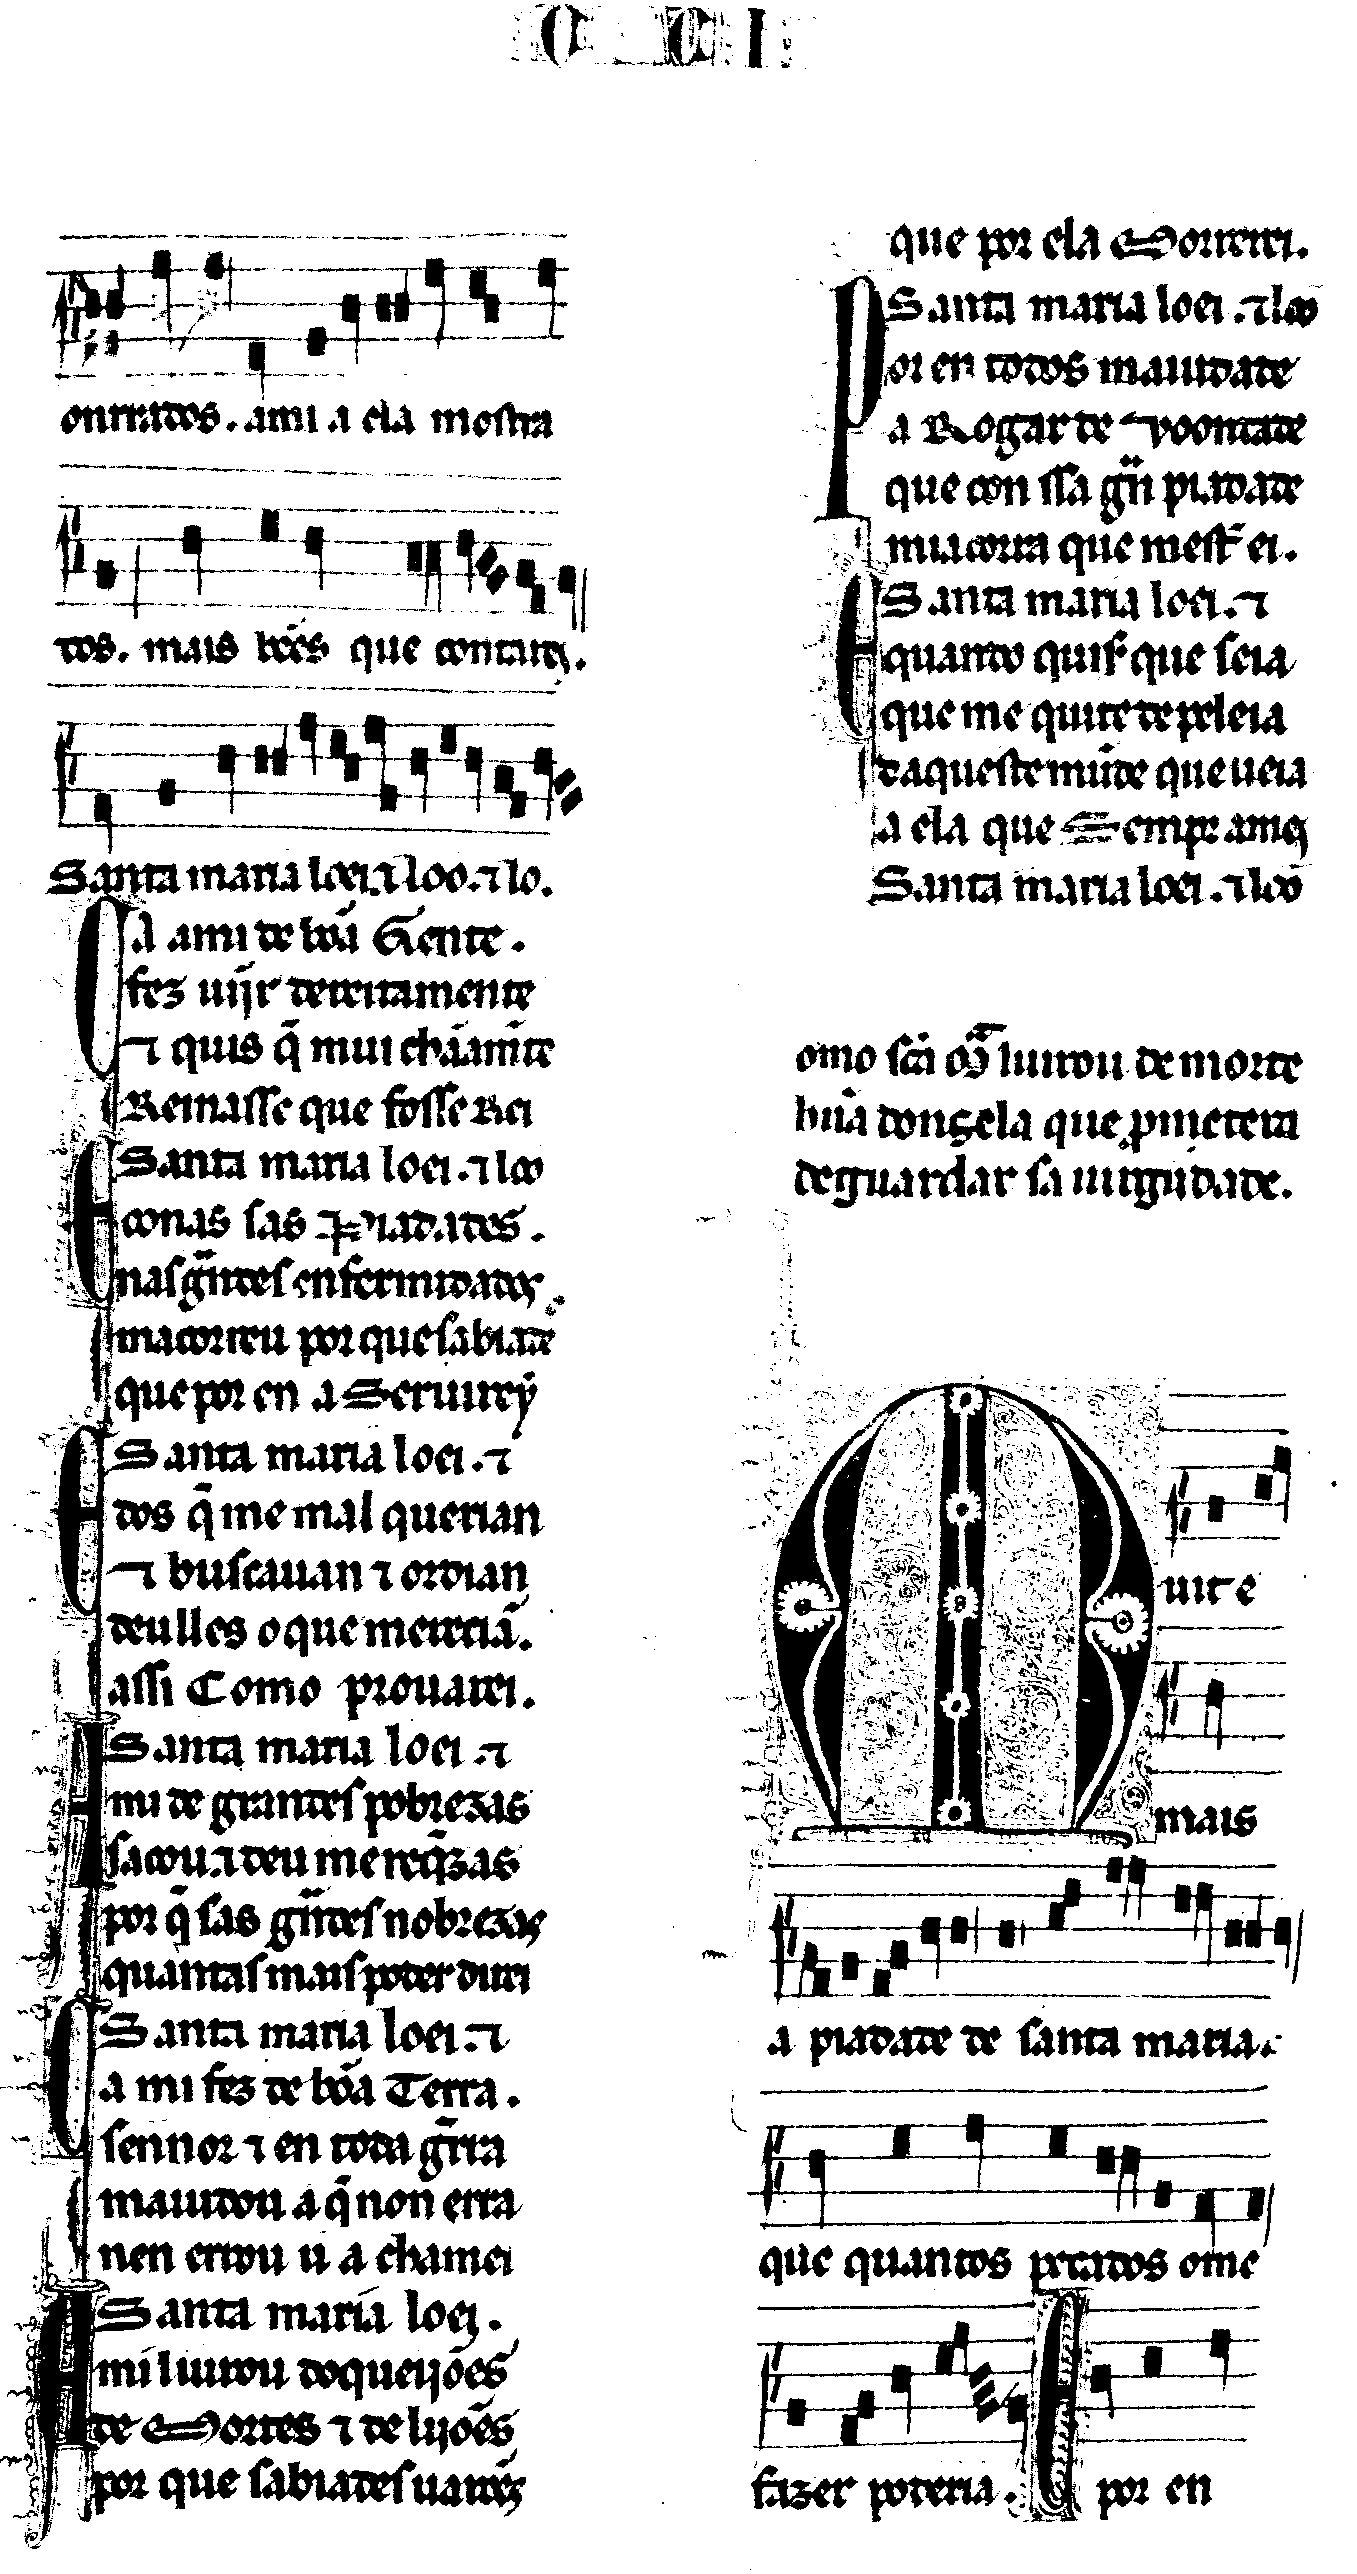 CCI
onrrados. a mi a ela mostra
dos. mais bẽes que contarey.
Santa maria loei. ⁊ loo. ⁊ lo.
Ca a mi de bõa Gente.
fez uĩjr dereitamente
⁊ quis q̃ mui chãamẽte
Reinasse que fosse Rei
Santa maria loei. ⁊ loo
E conas sas Piadades.
nas grãdes enfermidades
macorreu por que sabiade
que por en a Seruirey
Santa maria loei. ⁊
E dos q̃ me mal querian
⁊ buscauan ⁊ ordian
deulles o que mereciã.
assi Como prouarei.
Santa maria loei ⁊
A mi de grandes pobrezas
sacou. ⁊ deu me req̃zas
por q̃ sas grãdes nobrezas
quantas mais poder direi
Santa maria loei. ⁊
Ca mi fez de bõa Terra.
sennor ⁊ en toda g̃rra
maiudou a q̃ non erra
nen errou u a chamei
Santa maria loei.
A mi liurou doqueijões
de Mortes ⁊ de lijões
por que sabiades uarões
que por ela Morrerei.
Santa maria loei. ⁊ loo
Por en todos maiudade
a Rogar de voontade
que con ssa grã piadade
mi acorra que mest̃ ei.
Santa maria loei. ⁊
E quando quis̃ que seia
que me quite de peleia
daqueste mũde que ueia
a ela que Sempr amei
Santa maria loei. ⁊ loo
omo scã Mã liurou de morte
hũa donzela que p̃metera
de guardar sa uirgĩdade.
Muit e
mais
a piadade de santa maria.
que quantos pecados ome
fazer poderia. E por en